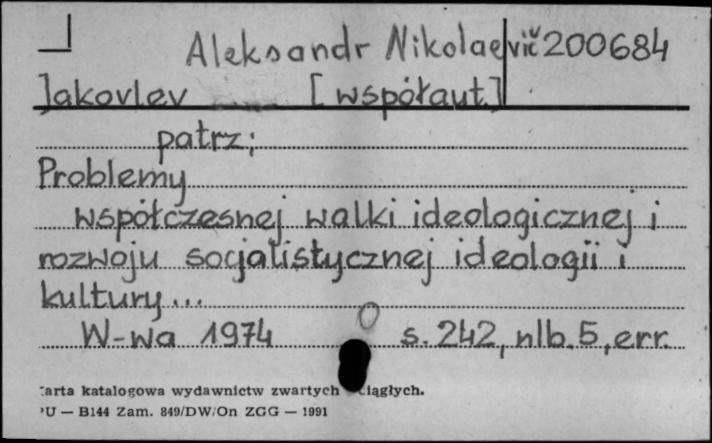 Aleksandr Nikolaevič 200684
Jakovlev [współaut.]
patrz:
Problemy
współczesnej walki ideologicznej i
rozwoju socjalistycznej ideologii i
kultury...
W-wa 1974 s. 242, nlb. 5, err.
arta katalogowa wydawnictw zwartych ciągłych.
U — B144 Zam. 849/DW/On ZGG — 1991